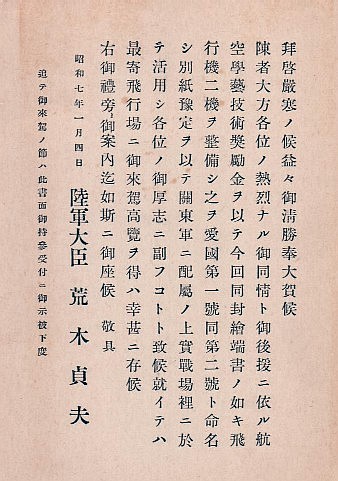 拜啓嚴寒ノ候益々御淸勝奉大賀候
陳者大方各位ノ熱烈ナル御同情ト御後援ニ依ル航
空學藝技術奬勵金ヲ以テ今回同封繪端書ノ如キ飛
行機二機ヲ整備シ之ヲ愛國第一號同第二號ト命名
シ別紙豫定ヲ以テ關東軍ニ配屬ノ上實戰場裡ニ於
テ活用シ各位ノ御厚志ニ副フコトト致候就イテハ
最寄飛行場ニ御來駕高覽ヲ得ハ幸甚ニ存候
右御禮旁々御案內迄如斯ニ御座候 敬具
昭和七年一月四日
陸軍大臣 荒木貞夫
追テ御來駕ノ節ハ此書面御持參受付ニ御示被下度